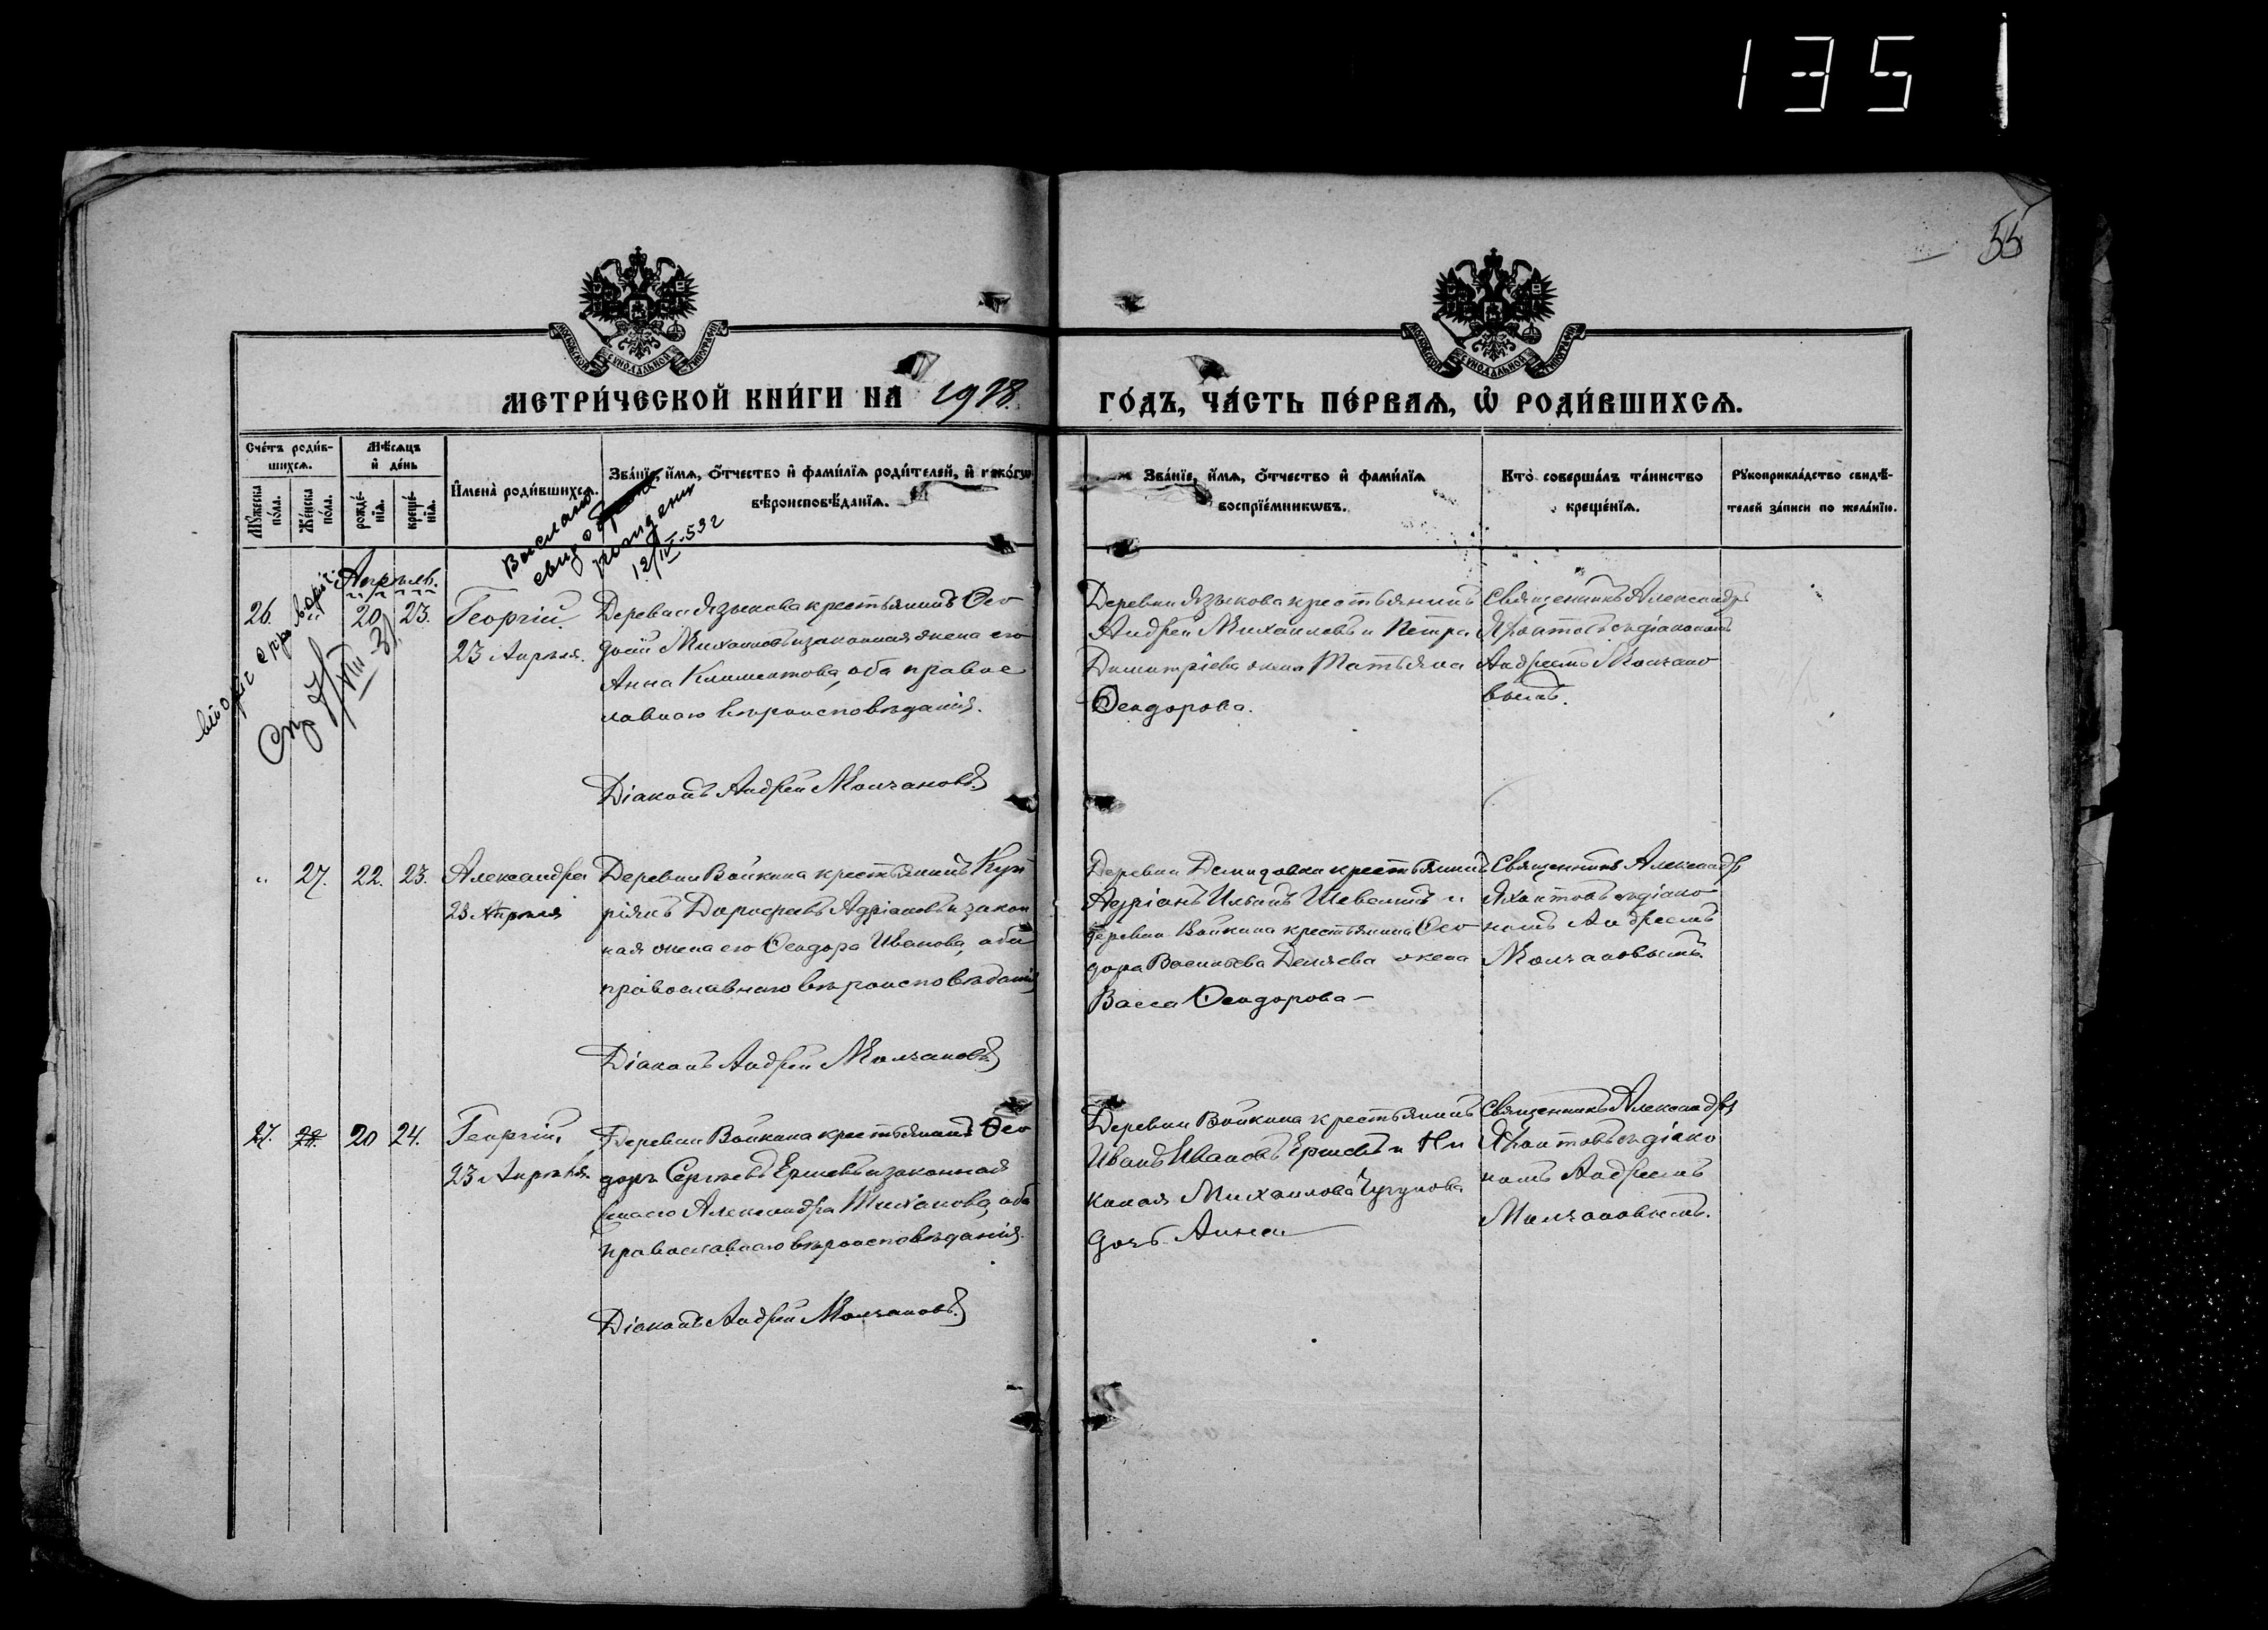 1351
55
МОСКОВСКОЙ СУНОДАЛЬНОЙ ТИПОГРАФІИ
МОСКОВСКОЙ СУНОДАЛЬНОЙ ТИПОГРАФІИ
МЕТРИ́ЧЕСКОЙ КНИ́ГИ НА
ГО́ДЪ, ЧА́СТЬ ПЕ́РВАѦ, Ѡ РОДИ́ВШИХСѦ.
Сче́тъ роди́в-
шихсѧ.
Мꙋ́жеска по́ла.
Же́нска по́ла.
Мѣ́сѧцъ
и҆ де́нь
рожде́-
нїѧ.
креще́-
нїѧ.
И҆мена̀ роди́вшихсѧ.
Зва́нїе, и҆́мѧ, ѻ҆́тчество и҆ фами́лїѧ роди́телей, и҆ како́гѡ
вѣроисповѣ́данїѧ.
Зва́нїе, и҆́мѧ, ѻ҆́тчество и҆ фами́лїѧ
воспрїе́мникѡвъ.
Кто̀ соверша́лъ та́инство
креще́нїѧ.
Рꙋкоприкла́дство свидѣ́-
телей за́писи по жела́нїю.
Выслано
свид о
рождении
12/IV-53 г
Апрѣль.
26. " 20 23. Георгій.
23 Апрѣля.
Деревни Языкова крестьянинъ Ѳео
досій Михаиловъ и законная жена его
Анна Климентова, оба правос
лавнаго вѣроисповѣданія.
Діаконъ Андрей Молчановъ
Деревни Языкова крестьянинъ
Андрей Михаиловъ и Петра
Димитріева жена Татьяна
Ѳеодорова.
Священникъ Александръ
Яхонтовъ съ діакономъ
Андреемъ Молчано
вымъ.
" 27. 22. 23. Александра
23 Апрѣля
Деревни Войкина крестьянинъ Куп
ріянъ Дорофеевъ Адріановъ и закон
ная жена его Ѳеодора Иванова, оба
православнаго вѣроисповѣданія
Діаконъ Андрей Молчановъ
Деревни Демидовки крестьянинъ
Адріанъ Ильинъ и
деревни Войкина крестьянина Ѳео
дора Васильева жена
Васса Ѳеодорова —
Священникъ Александръ
Яхонтовъ съ діако
номъ Андреемъ
Молчановымъ.
27. 28. 20 24. Георгій,
23 Апрѣля.
Деревни Войкина крестьянинъ Ѳео
доръ Сергѣевъ Ершовъ и законная
жена его Александра Тиханова, оба
православнаго вѣроисповѣданія.
Діаконъ Андрей Молчановъ.
Деревни Войкина крестьянинъ
Иванъ Ивановъ Ершовъ и Ни
колая Михаилова Чугунова
дочь Анна
Священникъ Александръ
Яхонтовъ съ діако
номъ Андреемъ
Молчановымъ.